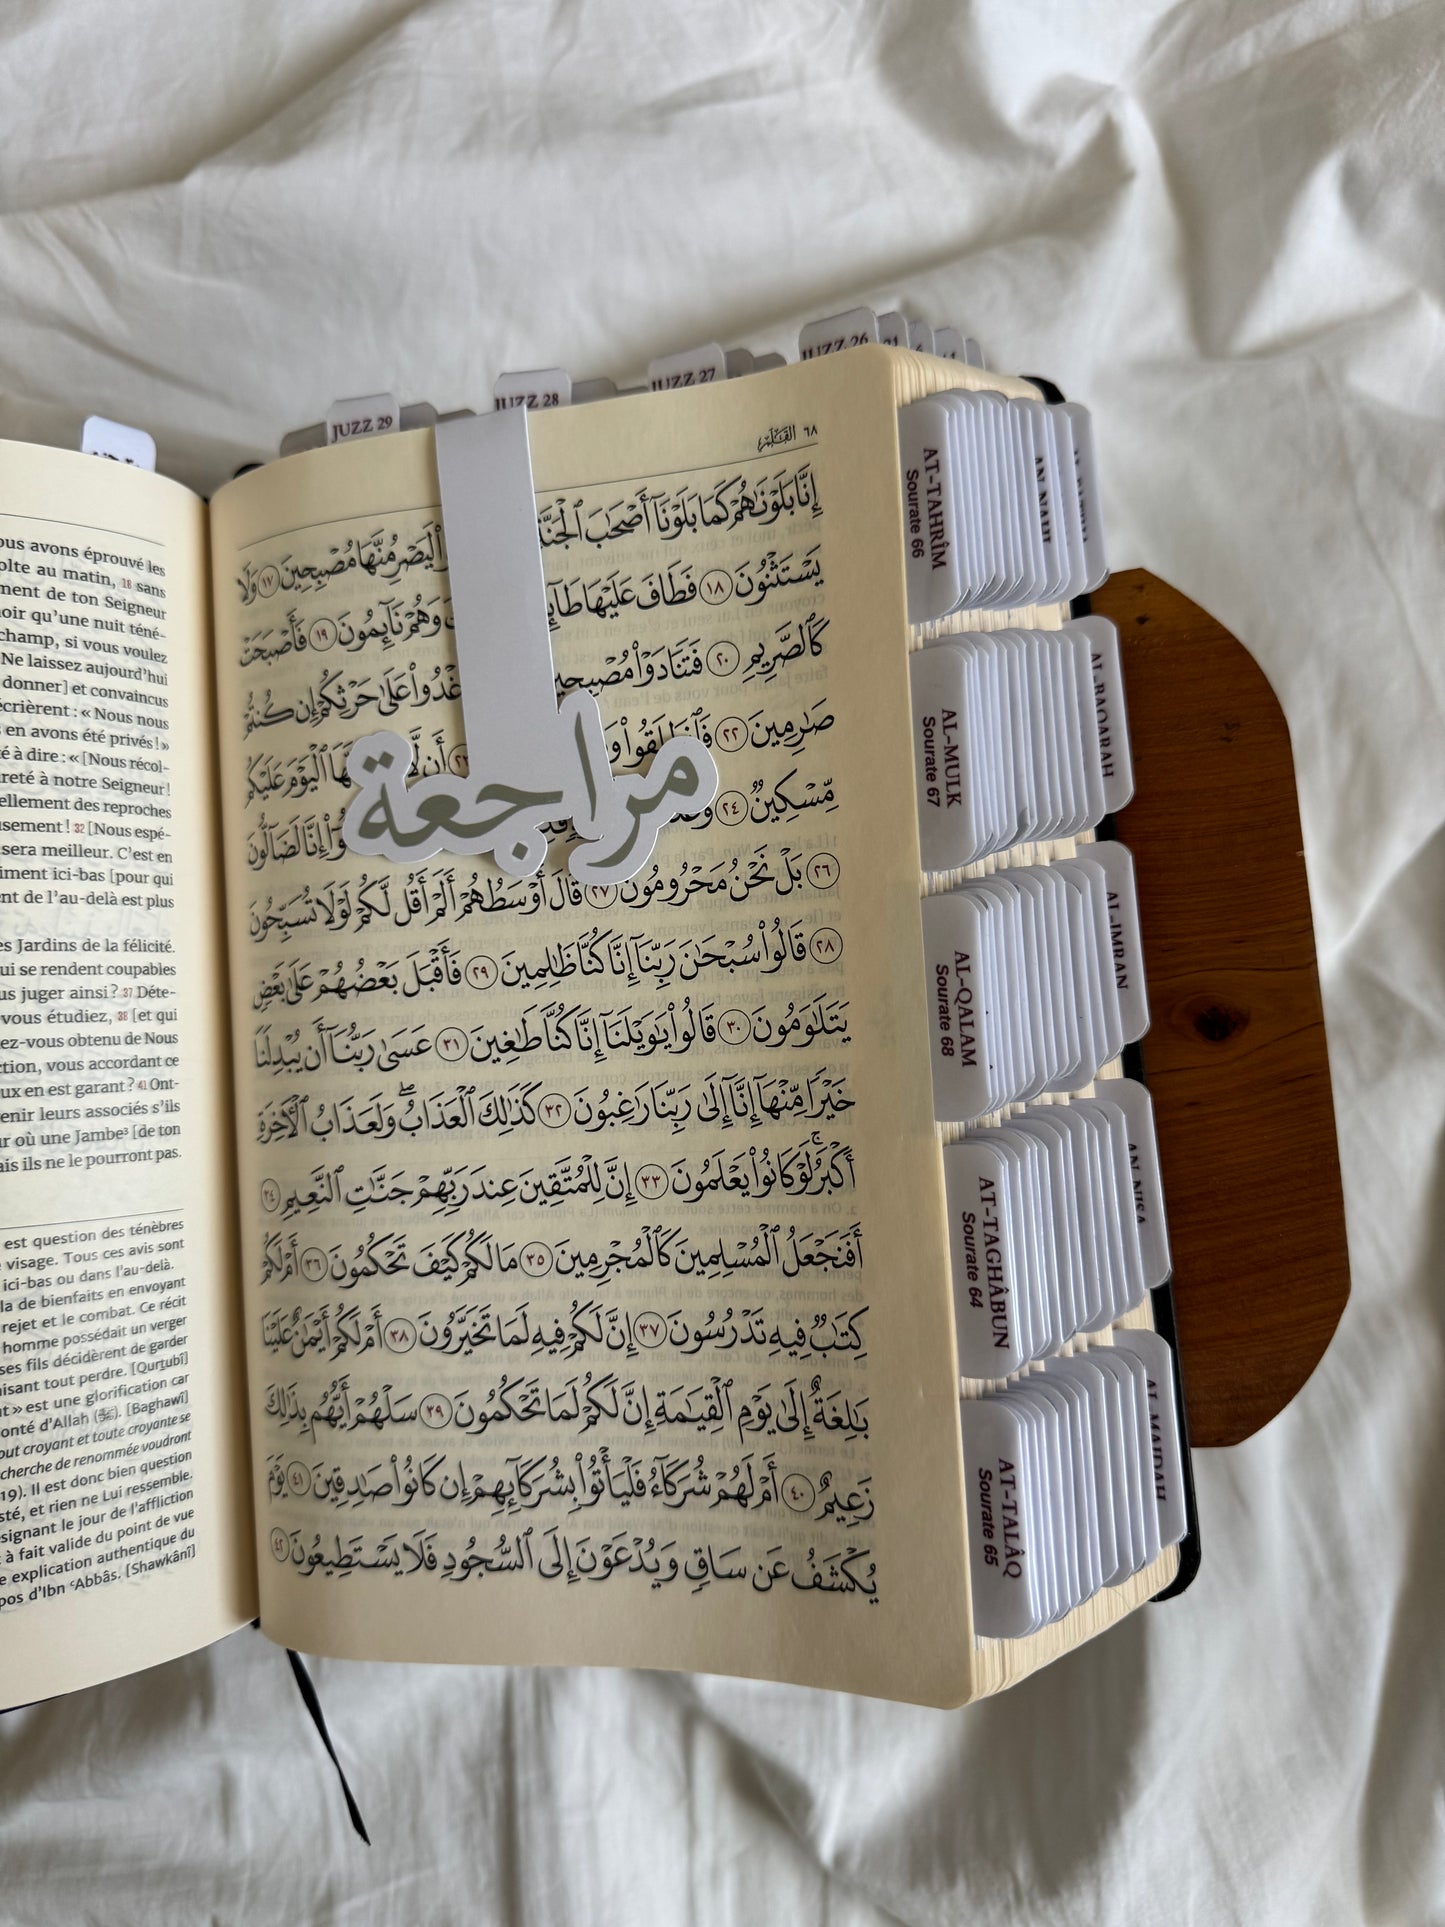 JUZZ 29
JUZZ 28
JUZZ 27
JUZZ 26
٦٨ القَلَم
إِنَّا بَلَوْنَٰهُمْ كَمَا بَلَوْنَآ أَصْحَٰبَ ٱلْجَنَّةِ لَيَصْرِمُنَّهَا مُصْبِحِينَ ١٧ وَلَا
يَسْتَثْنُونَ ١٨ فَطَافَ عَلَيْهَا وَهُمْ نَآئِمُونَ ١٩ فَأَصْبَحَتْ
كَٱلصَّرِيمِ ٢٠ فَتَنَادَوْا۟ مُصْبِحِينَ ٱغْدُوا۟ عَلَىٰ حَرْثِكُمْ إِن كُنتُمْ
صَٰرِمِينَ ٢٢ أَن لَّا ٱلْيَوْمَ عَلَيْكُم
مِّسْكِينٌ ٢٤ إِنَّا لَضَآلُّونَ
٢٦ بَلْ نَحْنُ مَحْرُومُونَ ٢٧ قَالَ أَوْسَطُهُمْ أَلَمْ أَقُل لَّكُمْ لَوْلَا تُسَبِّحُونَ
٢٨ قَالُوا۟ سُبْحَٰنَ رَبِّنَآ إِنَّا كُنَّا ظَٰلِمِينَ ٢٩ فَأَقْبَلَ بَعْضُهُمْ عَلَىٰ بَعْضٍ
يَتَلَٰوَمُونَ ٣٠ قَالُوا۟ يَٰوَيْلَنَآ إِنَّا كُنَّا طَٰغِينَ ٣١ عَسَىٰ رَبُّنَآ أَن يُبْدِلَنَا
خَيْرًا مِّنْهَآ إِنَّآ إِلَىٰ رَبِّنَا رَٰغِبُونَ ٣٢ كَذَٰلِكَ ٱلْعَذَابُ ۖ وَلَعَذَابُ ٱلْأَخِرَةِ
أَكْبَرُ ۚ لَوْ كَانُوا۟ يَعْلَمُونَ ٣٣ إِنَّ لِلْمُتَّقِينَ عِندَ رَبِّهِمْ جَنَّٰتِ ٱلنَّعِيمِ ٣٤
أَفَنَجْعَلُ ٱلْمُسْلِمِينَ كَٱلْمُجْرِمِينَ ٣٥ مَا لَكُمْ كَيْفَ تَحْكُمُونَ ٣٦ أَمْ لَكُمْ
كِتَٰبٌ فِيهِ تَدْرُسُونَ ٣٧ إِنَّ لَكُمْ فِيهِ لَمَا تَخَيَّرُونَ ٣٨ أَمْ لَكُمْ أَيْمَٰنٌ عَلَيْنَا
بَٰلِغَةٌ إِلَىٰ يَوْمِ ٱلْقِيَٰمَةِ إِنَّ لَكُمْ لَمَا تَحْكُمُونَ ٣٩ سَلْهُمْ أَيُّهُم بِذَٰلِكَ
زَعِيمٌ ٤٠ أَمْ لَهُمْ شُرَكَآءُ فَلْيَأْتُوا۟ بِشُرَكَآئِهِمْ إِن كَانُوا۟ صَٰدِقِينَ ٤١ يَوْمَ
يُكْشَفُ عَن سَاقٍ وَيُدْعَوْنَ إِلَى ٱلسُّجُودِ فَلَا يَسْتَطِيعُونَ ٤٢
مراجعة
AT-TAHRÎM
Sourate 66
AL-MULK
Sourate 67
AL-QALAM
Sourate 68
AT-TAGHÂBUN
Sourate 64
AT-TALÂQ
Sourate 65
AN-NAHL
AL-BAQARAH
AL-IMRAN
AN-NISA
AL-MAIDAH
ous avons éprouvé les
olte au matin, 18 sans
ment de ton Seigneur
noir qu'une nuit téné-
champ, si vous voulez
Ne laissez aujourd'hui
donner] et convaincus
écrièrent : « Nous nous
s en avons été privés ! »
té à dire : « [Nous récol-
ireté à notre Seigneur !
ellement des reproches
usement ! 32 [Nous espé-
sera meilleur. C'est en
timent ici-bas [pour qui
ent de l'au-delà est plus
es Jardins de la félicité.
ui se rendent coupables
us juger ainsi ? 37 Déte-
vous étudiez, 38 [et qui
ez-vous obtenu de Nous
ction, vous accordant ce
ux en est garant ? 41 Ont-
enir leurs associés s'ils
ur où une Jambe³ [de ton
ais ils ne le pourront pas.
est question des ténèbres
visage. Tous ces avis sont
ici-bas ou dans l'au-delà.
la de bienfaits en envoyant
rejet et le combat. Ce récit
homme possédait un verger
ses fils décidèrent de garder
aisant tout perdre. [Qurtubî]
ut » est une glorification car
onté d'Allah (ﷻ). [Baghawî]
out croyant et toute croyante se
cherche de renommée voudront
19). Il est donc bien question
sté, et rien ne Lui ressemble.
signant le jour de l'affliction
à fait valide du point de vue
e explication authentique du
pos d'Ibn ʿAbbâs. [Shawkânî]